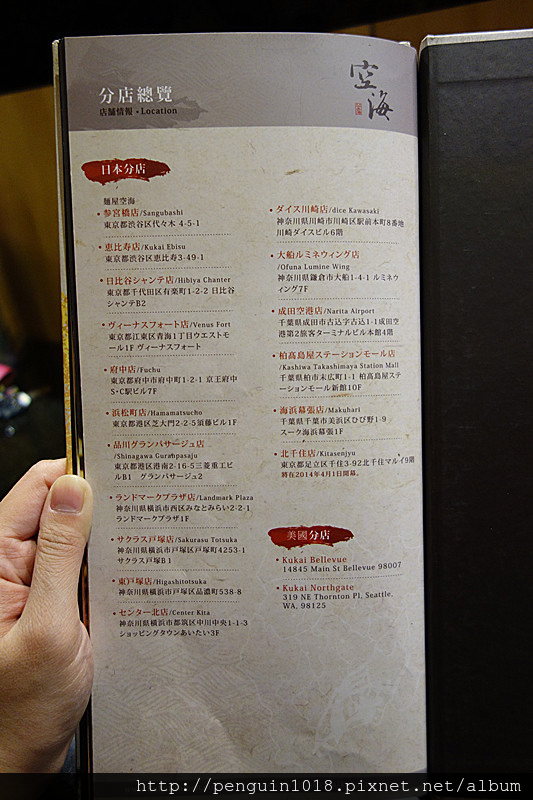 空海
分店總覽
店舖情報・Location
日本分店
麵屋空海
• 参宮橋店/Sangubashi
東京都渋谷区代々木 4-5-1
• 恵比寿店/Kukai Ebisu
東京都渋谷区恵比寿3-49-1
• 日比谷シャンテ店/Hibiya Chanter
東京都千代田区有楽町1-2-2 日比谷
シャンテB2
• ヴィーナスフォート店/Venus Fort
東京都江東区青海1丁目ウエストモ
ール1F ヴィーナスフォート
• 府中店/Fuchu
東京都府中市府中町1-2-1 京王府中
S・C駅ビル7F
• 浜松町店/Hamamatsucho
東京都港区芝大門2-2-5須藤ビル1F
• 品川グランパサージュ店
/Shinagawa Guranpasaju
東京都港区港南2-16-5三菱重工ビ
ルB1 グランパサージュ2
• ランドマークプラザ店/Landmark Plaza
神奈川県横浜市西区みなとみらい2-2-1
ランドマークプラザ1F
• サクラス戸塚店/Sakurasu Totsuka
神奈川県横浜市戸塚区戸塚町4253-1
サクラス戸塚B1
• 東戸塚店/Higashitotsuka
神奈川県横浜市戸塚区品濃町538-8
• センター北店/Center Kita
神奈川県横浜市都筑区中川中央1-1-3
ショッピングタウンあいたい3F
• ダイス川崎店/dice Kawasaki
神奈川県川崎市川崎区駅前本町8番地
川崎ダイスビル6階
• 大船ルミネウィング店
/Ofuna Lumine Wing
神奈川県鎌倉市大船1-4-1 ルミネウ
ィング7F
• 成田空港店/Narita Airport
千葉県成田市古込字古込1-1成田空
港第2旅客ターミナルビル本館4階
• 柏高島屋ステーションモール店
/Kashiwa Takashimaya Station Mall
千葉県柏市末広町1-1 柏高島屋ステ
ーションモール新館10F
• 海浜幕張店/Makuhari
千葉県千葉市美浜区ひび野1-9
スーク海浜幕張1F
• 北千住店/Kitasenjyu
東京都足立区千住3-92北千住マルイ9階
將在2014年4月1日開幕。
美國分店
• Kukai Bellevue
14845 Main St Bellevue 98007
• Kukai Northgate
319 NE Thornton Pl, Seattle,
WA, 98125
http://penguin1018.pixnet.net/album